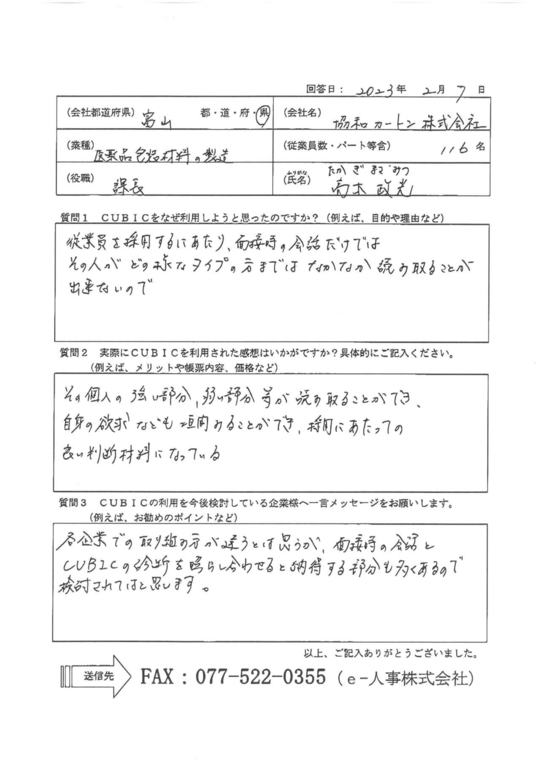 回答日： 2023年 2月 7日
(会社都道府県) 富山 都・道・府・県
(会社名) 協和カートン株式会社
(業種) 医薬品包装材料の製造
(従業員数・パート等含) 116名
(役職) 課長
ふりがな たかぎ まさみつ
(氏名) 高木 政光
質問１　ＣＵＢＩＣをなぜ利用しようと思ったのですか？（例えば、目的や理由など）
従業員を採用するにあたり、面接時の会話だけでは
その人が どの様なタイプの方までは なかなか 読み取ることが
出来ないので
質問２　実際にＣＵＢＩＣを利用された感想はいかがですか？具体的にご記入ください。
（例えば、メリットや帳票内容、価格など）
その個人の 強い部分、弱い部分 等が 読み取ることができ、
自身の欲求 なども 垣間みることができ、採用にあたっての
良い判断材料になっている
質問３　ＣＵＢＩＣの利用を今後検討している企業様へ一言メッセージをお願いします。
（例えば、お勧めのポイントなど）
各企業での取り組み方が違うとは思うが、面接時の会話と
CUBICの診断を照らし合わせると納得する部分も多くあるので
検討されてはと思います。
以上、ご記入ありがとうございました。
送信先 FAX：077-522-0355（ｅ−人事株式会社）